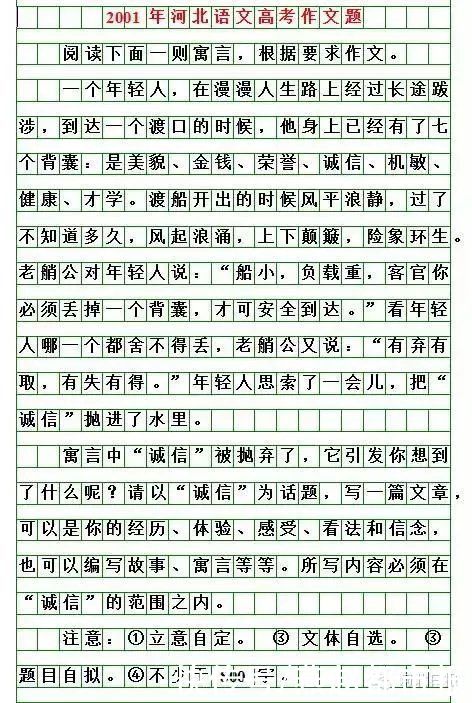 2001年河北语文高考作文题
阅读下面一则寓言，根据要求作文。
一个年轻人，在漫漫人生路上经过长途跋
涉，到达一个渡口的时候，他身上已经有了七
个背囊：是美貌、金钱、荣誉、诚信、机敏、
健康、才学。渡船开出的时候风平浪静，过了
不知道多久，风起浪涌，上下颠簸，险象环生。
老艄公对年轻人说：“船小，负载重，客官你
必须丢掉一个背囊，才可安全到达。”看年轻
人哪一个都舍不得丢，老艄公又说：“有弃有
取，有失有得。”年轻人思索了一会儿，把“
诚信”抛进了水里。
寓言中“诚信”被抛弃了，它引发你想到
了什么呢？请以“诚信”为话题，写一篇文章，
可以是你的经历、体验、感受、看法和信念，
也可以编写故事、寓言等等。所写内容必须在
“诚信”的范围之内。
注意：①立意自定。③文体自选。③
题目自拟。④不少于800字。